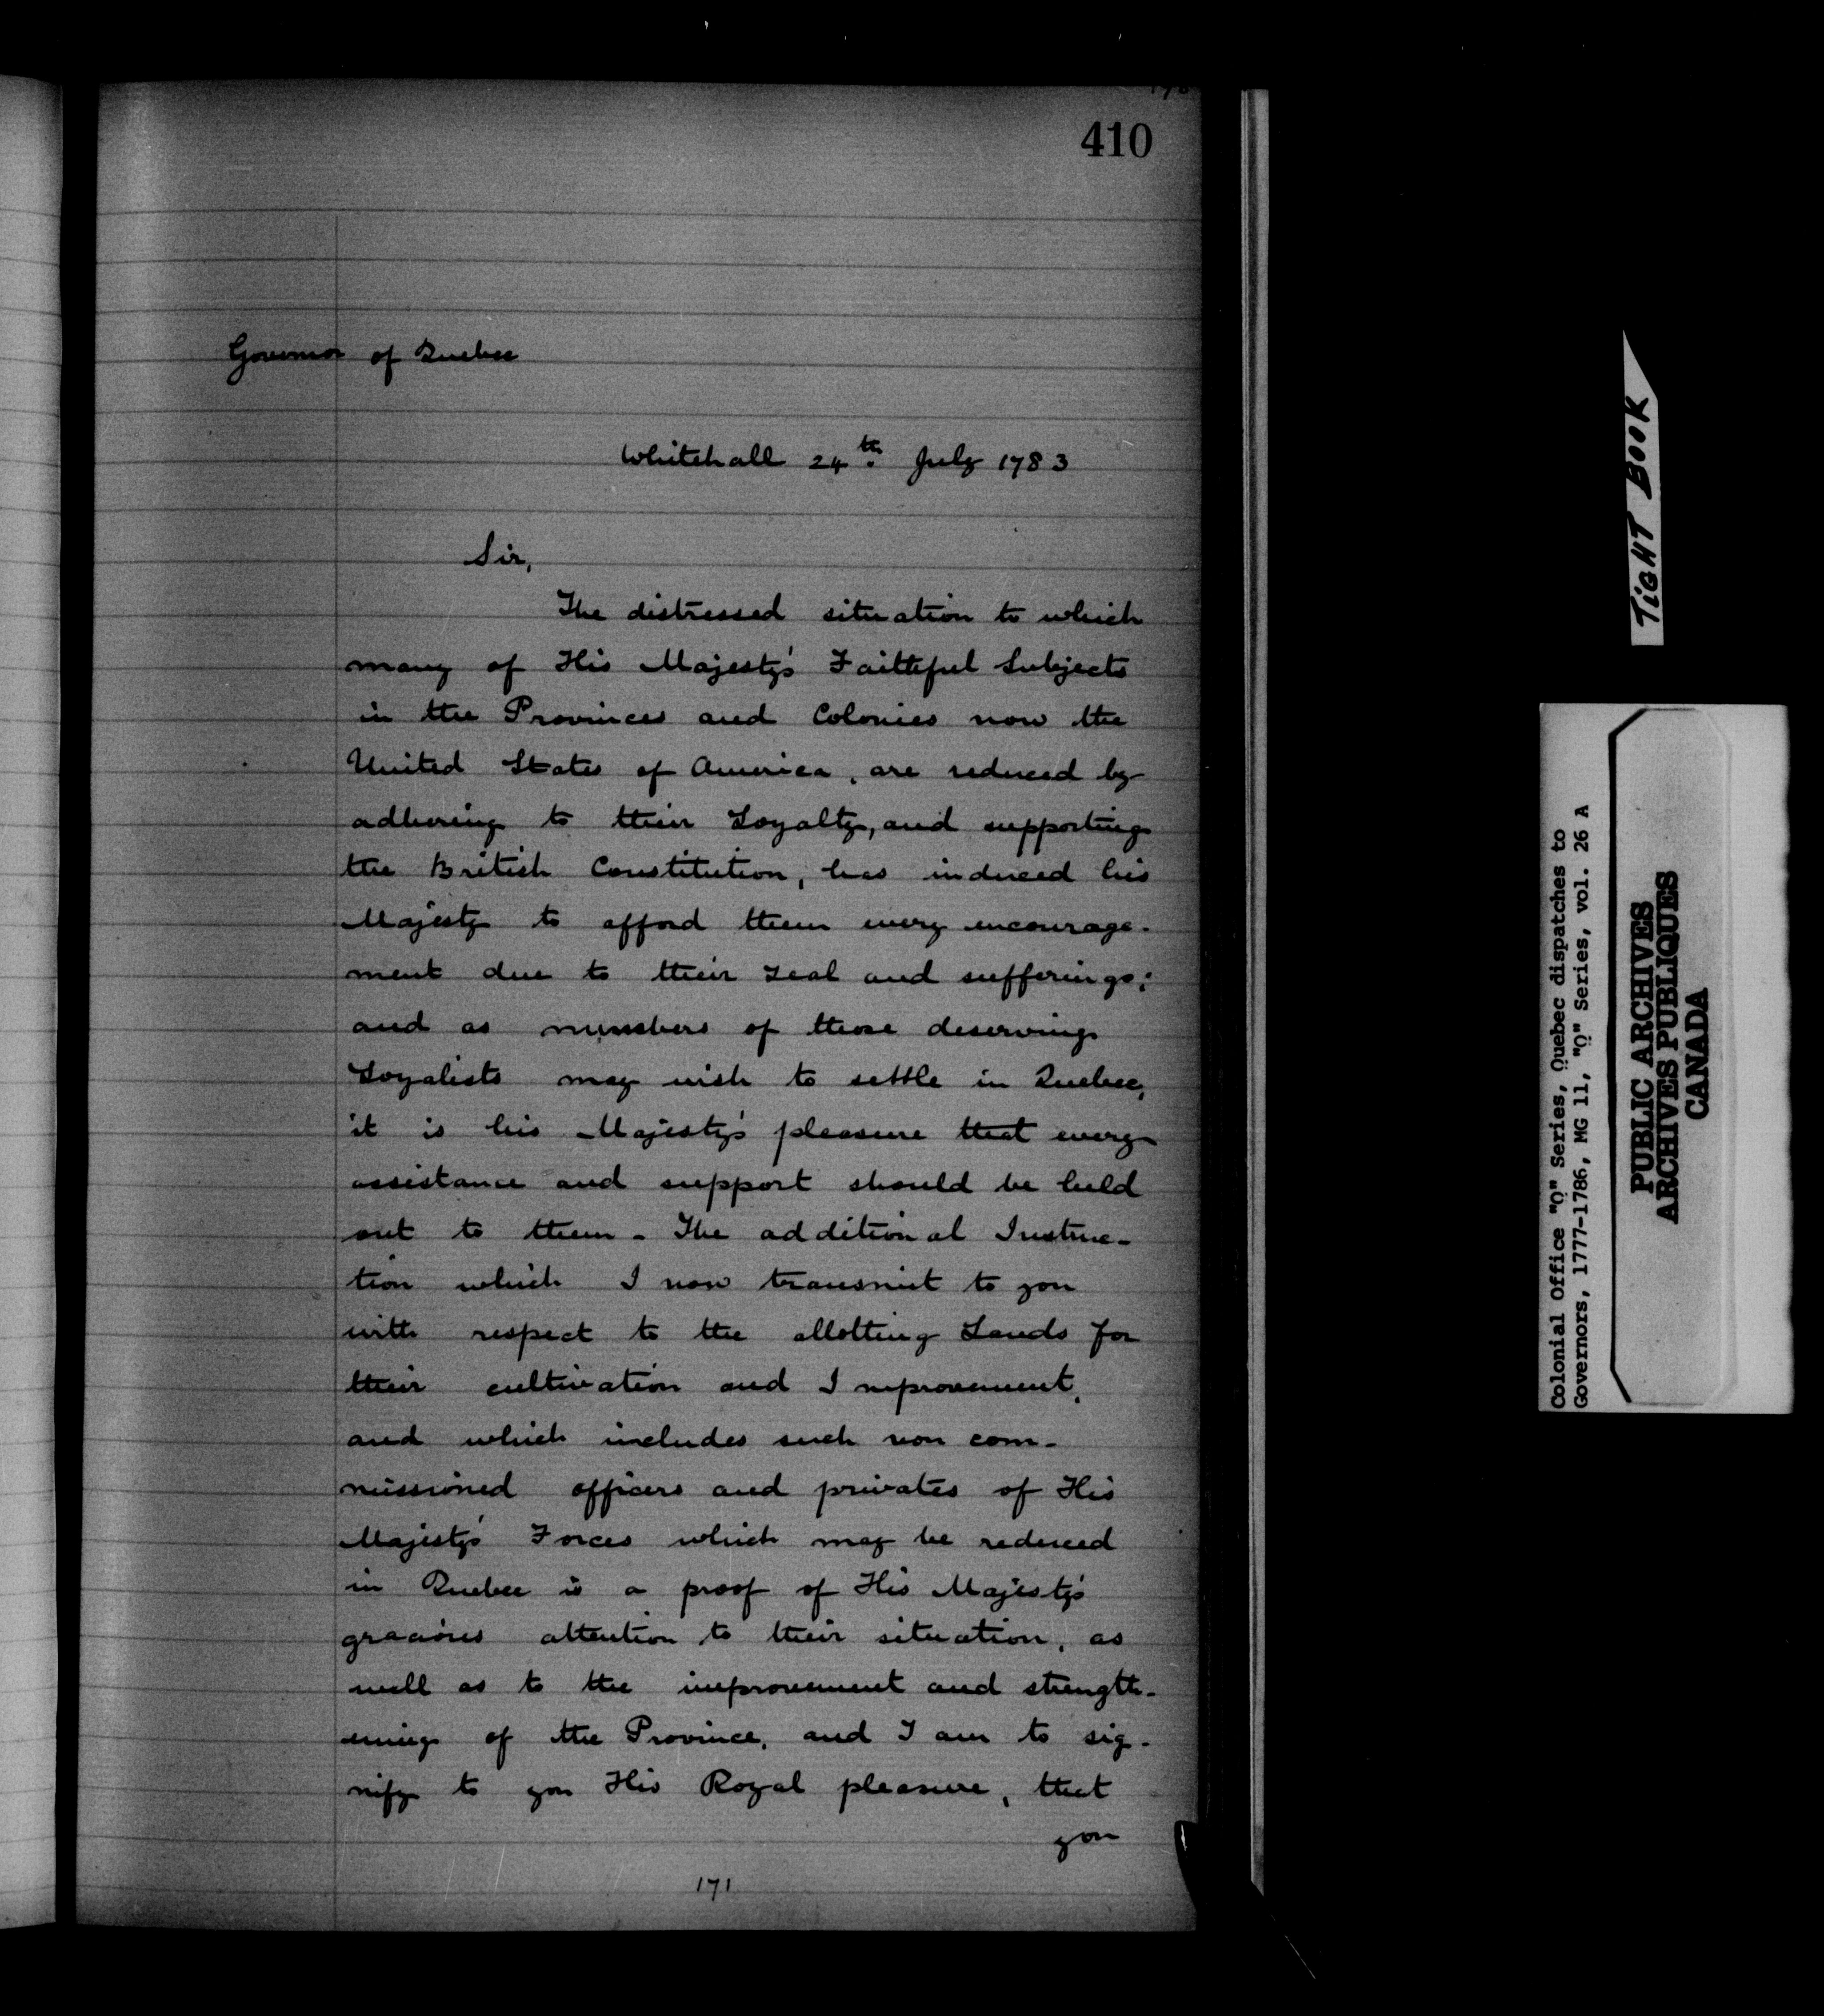 410
Governor of Quebec
Whitehall 24th. July 1783
Sir,
The distressed situation to which
many of His Majesty's Faithful Subjects
in the Provinces and Colonies now the
United States of America, are reduced by
adhering to their Loyalty, and supporting
the British Constitution, has induced his
Majesty to afford them every encourage-
ment due to their zeal and sufferings;
and as numbers of those deserving
Loyalists may wish to settle in Quebec,
it is his Majesty's pleasure that every
assistance and support should be held
out to them - The additional Instruc-
tion which I now transmit to you
with respect to the allotting Lands for
their cultivation and Improvement,
and which includes such non com-
missioned officers and privates of His
Majesty's Forces which may be reduced
in Quebec is a proof of His Majesty's
gracious attention to their situation, as
well as to the improvement and strength-
ening of the Province, and I am to sig-
nify to you His Royal pleasure, that
you
171
TIGHT BOOK
Colonial Office "Q" Series, Quebec dispatches to
Governors, 1777-1786, MG 11, "Q" Series, vol. 26 A
PUBLIC ARCHIVES
ARCHIVES PUBLIQUES
CANADA